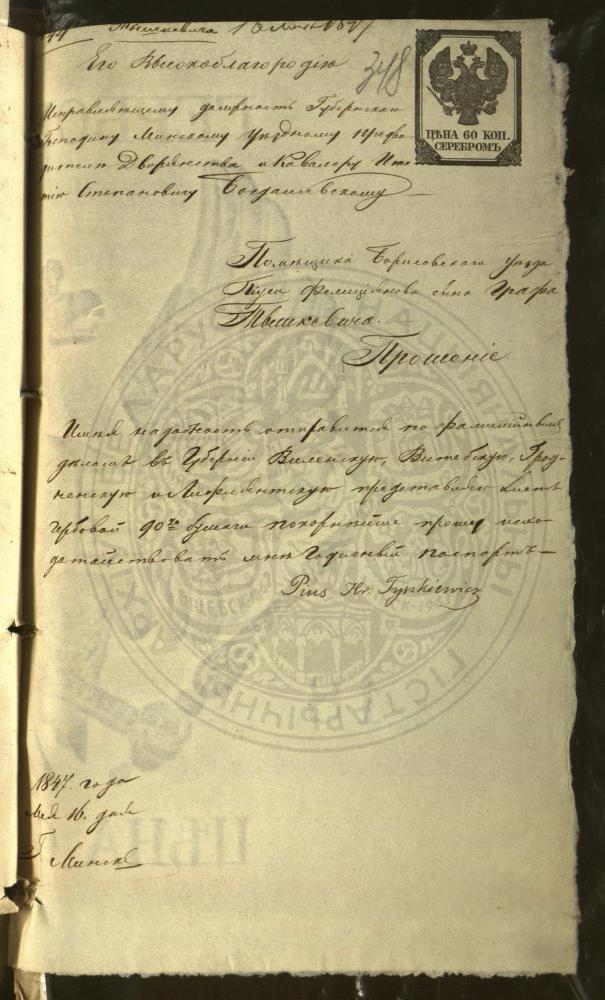 Тышкевича 16 Мая 1847
Его Высокоблагородію
348
ЦѢНА 60 КОП.
СЕРЕБРОМЪ.
Исправляющему должность Губернскаго
Господину Минскому уѣздному предво-
дителю Дворянства и Кавалеру
Степановичу Богдашевскому
Помѣщика Борисовскаго уѣзда
Піуса Фелиціянова сына Графа
Тышкевича.
Прошеніе
Имѣя надобность отправится по фамилійнымъ
дѣламъ въ Губерніи Виленскую, Витебскую, Грод-
ненскую и Лифляндскую представляю листъ
гербовой 90 ко бумаги покорнѣйше прошу исхо-
датайствовать мнѣ Годичный паспортъ —
Pius Hr. Tyszkiewicz
1847. года
Мая 16. дня
Г Минскъ
ЦѢНА